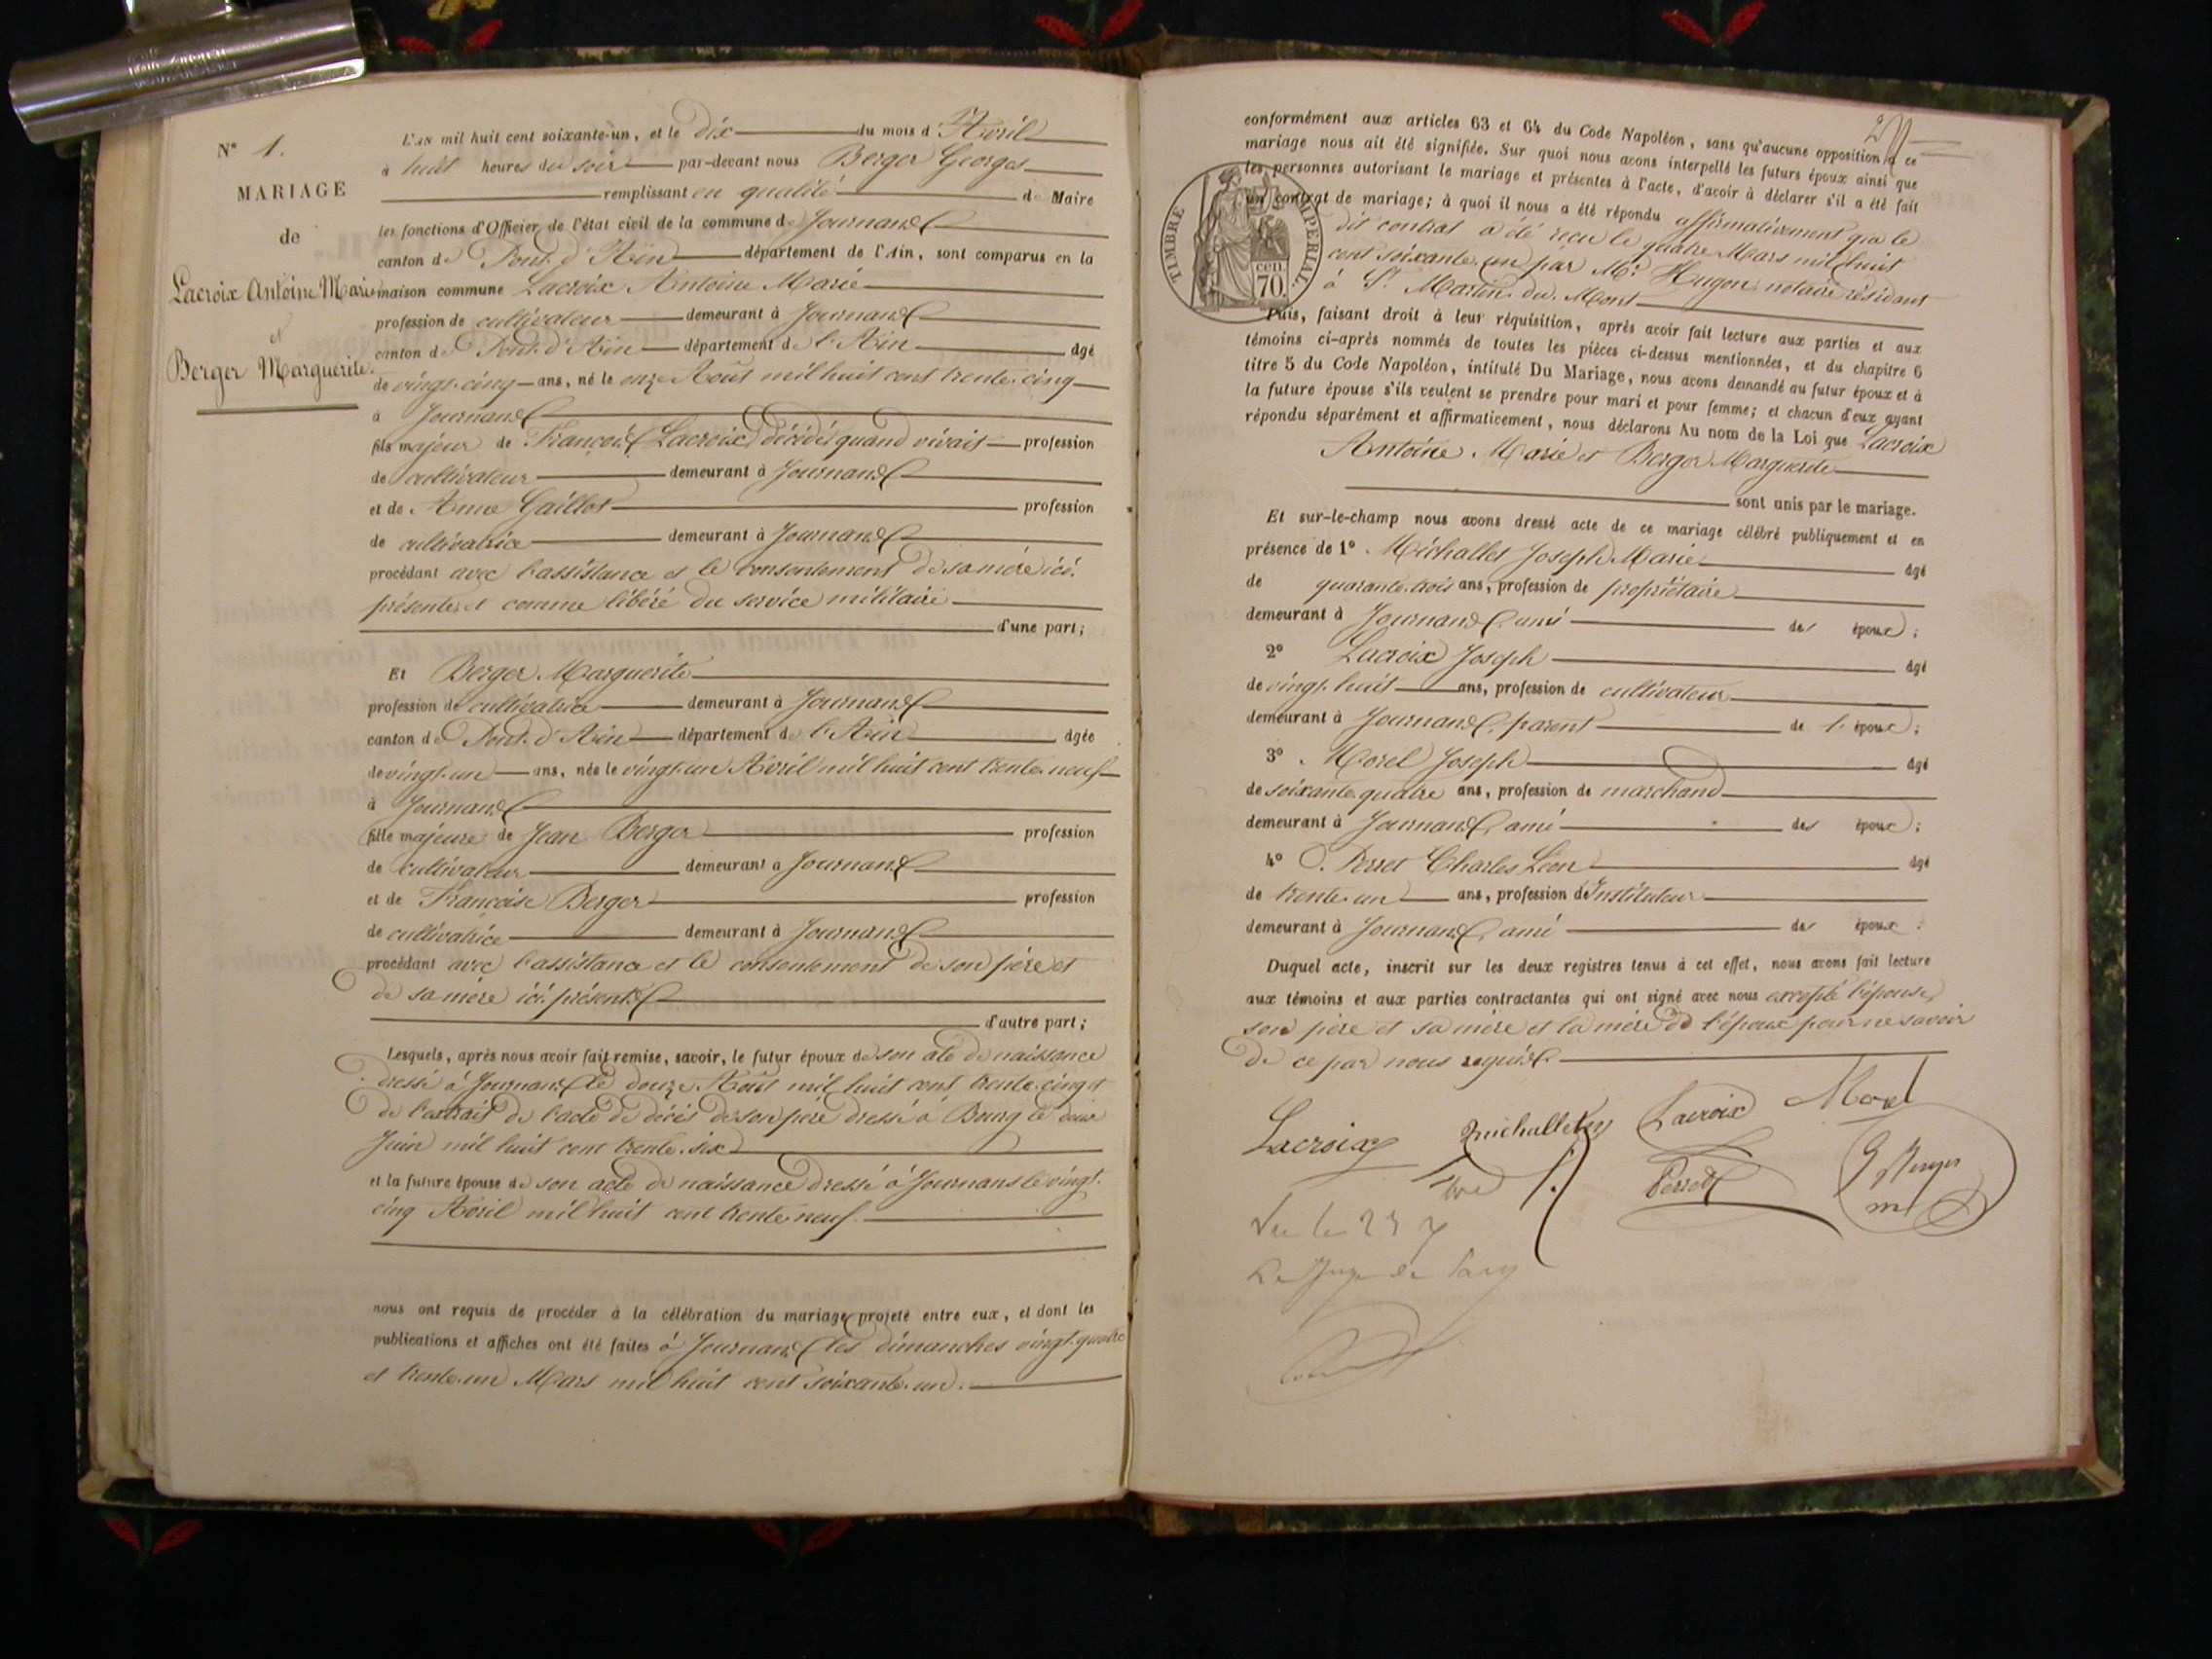 N° 1.
MARIAGE
de
Lacroix Antoine Marie
et
Berger Marguerite.
L'AN mil huit cent soixante-un, et le dix du mois d'Avril
à huit heures du soir par-devant nous Berger Georges
remplissant en qualité de Maire
les fonctions d'Officier de l'état civil de la commune de Journans
canton de Pont-d'Ain département de l'Ain, sont comparus en la
maison commune Lacroix Antoine Marie
profession de cultivateur demeurant à Journans
canton de Pont-d'Ain département de l'Ain âgé
de vingt-cinq ans, né le onze Août mil huit cent trente-cinq
à Journans
fils majeur de François Lacroix décédé quand vivait profession
de cultivateur demeurant à Journans
et de Anne Gaillot profession
de cultivatrice demeurant à Journans
procédant avec l'assistance et le consentement de sa mère ici
présente et comme libéré du service militaire
d'une part;
Et Berger Marguerite
profession de cultivatrice demeurant à Journans
canton de Pont-d'Ain département de l'Ain âgée
de vingt-un ans, née le vingt-un Avril mil huit cent trente-neuf
à Journans
fille majeure de Jean Berger profession
de cultivateur demeurant à Journans
et de Françoise Berger profession
de cultivatrice demeurant à Journans
procédant avec l'assistance et le consentement de son père et
de sa mère ici présents
d'autre part;
Lesquels, après nous avoir fait remise, savoir, le futur époux de son acte de naissance
dressé à Journans le douze Août mil huit cent trente-cinq et
de l'extrait de l'acte de décès de son père dressé à Bourg le deux
Juin mil huit cent trente-six
et la future épouse de son acte de naissance dressé à Journans le vingt-
cinq Avril mil huit cent trente neuf.
nous ont requis de procéder à la célébration du mariage projeté entre eux, et dont les
publications et affiches ont été faites à Journans les dimanches vingt-quatre
et trente-un Mars mil huit cent soixante-un.
conformément aux articles 63 et 64 du Code Napoléon, sans qu'aucune opposition à ce
mariage nous ait été signifiée. Sur quoi nous avons interpellé les futurs époux ainsi que
les personnes autorisant le mariage et présentes à l'acte, d'avoir à déclarer s'il a été fait
un contrat de mariage; à quoi il nous a été répondu affirmativement que le
dit contrat a été reçu le quatre Mars mil huit
cent soixante-un par Me Hugon notaire résidant
à St Martin-du-Mont
TIMBRE IMPERIAL.
cen.
70.
Puis, faisant droit à leur réquisition, après avoir fait lecture aux parties et aux
témoins ci-après nommés de toutes les pièces ci-dessus mentionnées, et du chapitre 6
titre 5 du Code Napoléon, intitulé Du Mariage, nous avons demandé au futur époux et à
la future épouse s'ils veulent se prendre pour mari et pour femme; et chacun d'eux ayant
répondu séparément et affirmativement, nous déclarons Au nom de la Loi que Lacroix
Antoine Marie et Berger Marguerite
sont unis par le mariage.
Et sur-le-champ nous avons dressé acte de ce mariage célébré publiquement et en
présence de 1° Michallet Joseph Marie âgé
de quarante-trois ans, profession de propriétaire
demeurant à Journans ami des époux;
2° Lacroix Joseph âgé
de vingt-huit ans, profession de cultivateur
demeurant à Journans, parent de l'époux;
3° Morel Joseph âgé
de soixante quatre ans, profession de marchand
demeurant à Journans, ami des époux;
4° Perret Charles Léon âgé
de trente-un ans, profession d'Instituteur
demeurant à Journans, ami des époux.
Duquel acte, inscrit sur les deux registres tenus à cet effet, nous avons fait lecture
aux témoins et aux parties contractantes qui ont signé avec nous excepté l'épouse,
son père et sa mère et la mère de l'époux pour ne savoir
de ce par nous requis.
Lacroix michallet Lacroix Morel
Perret G Berger
Vu le 23
Le Juge de Paix